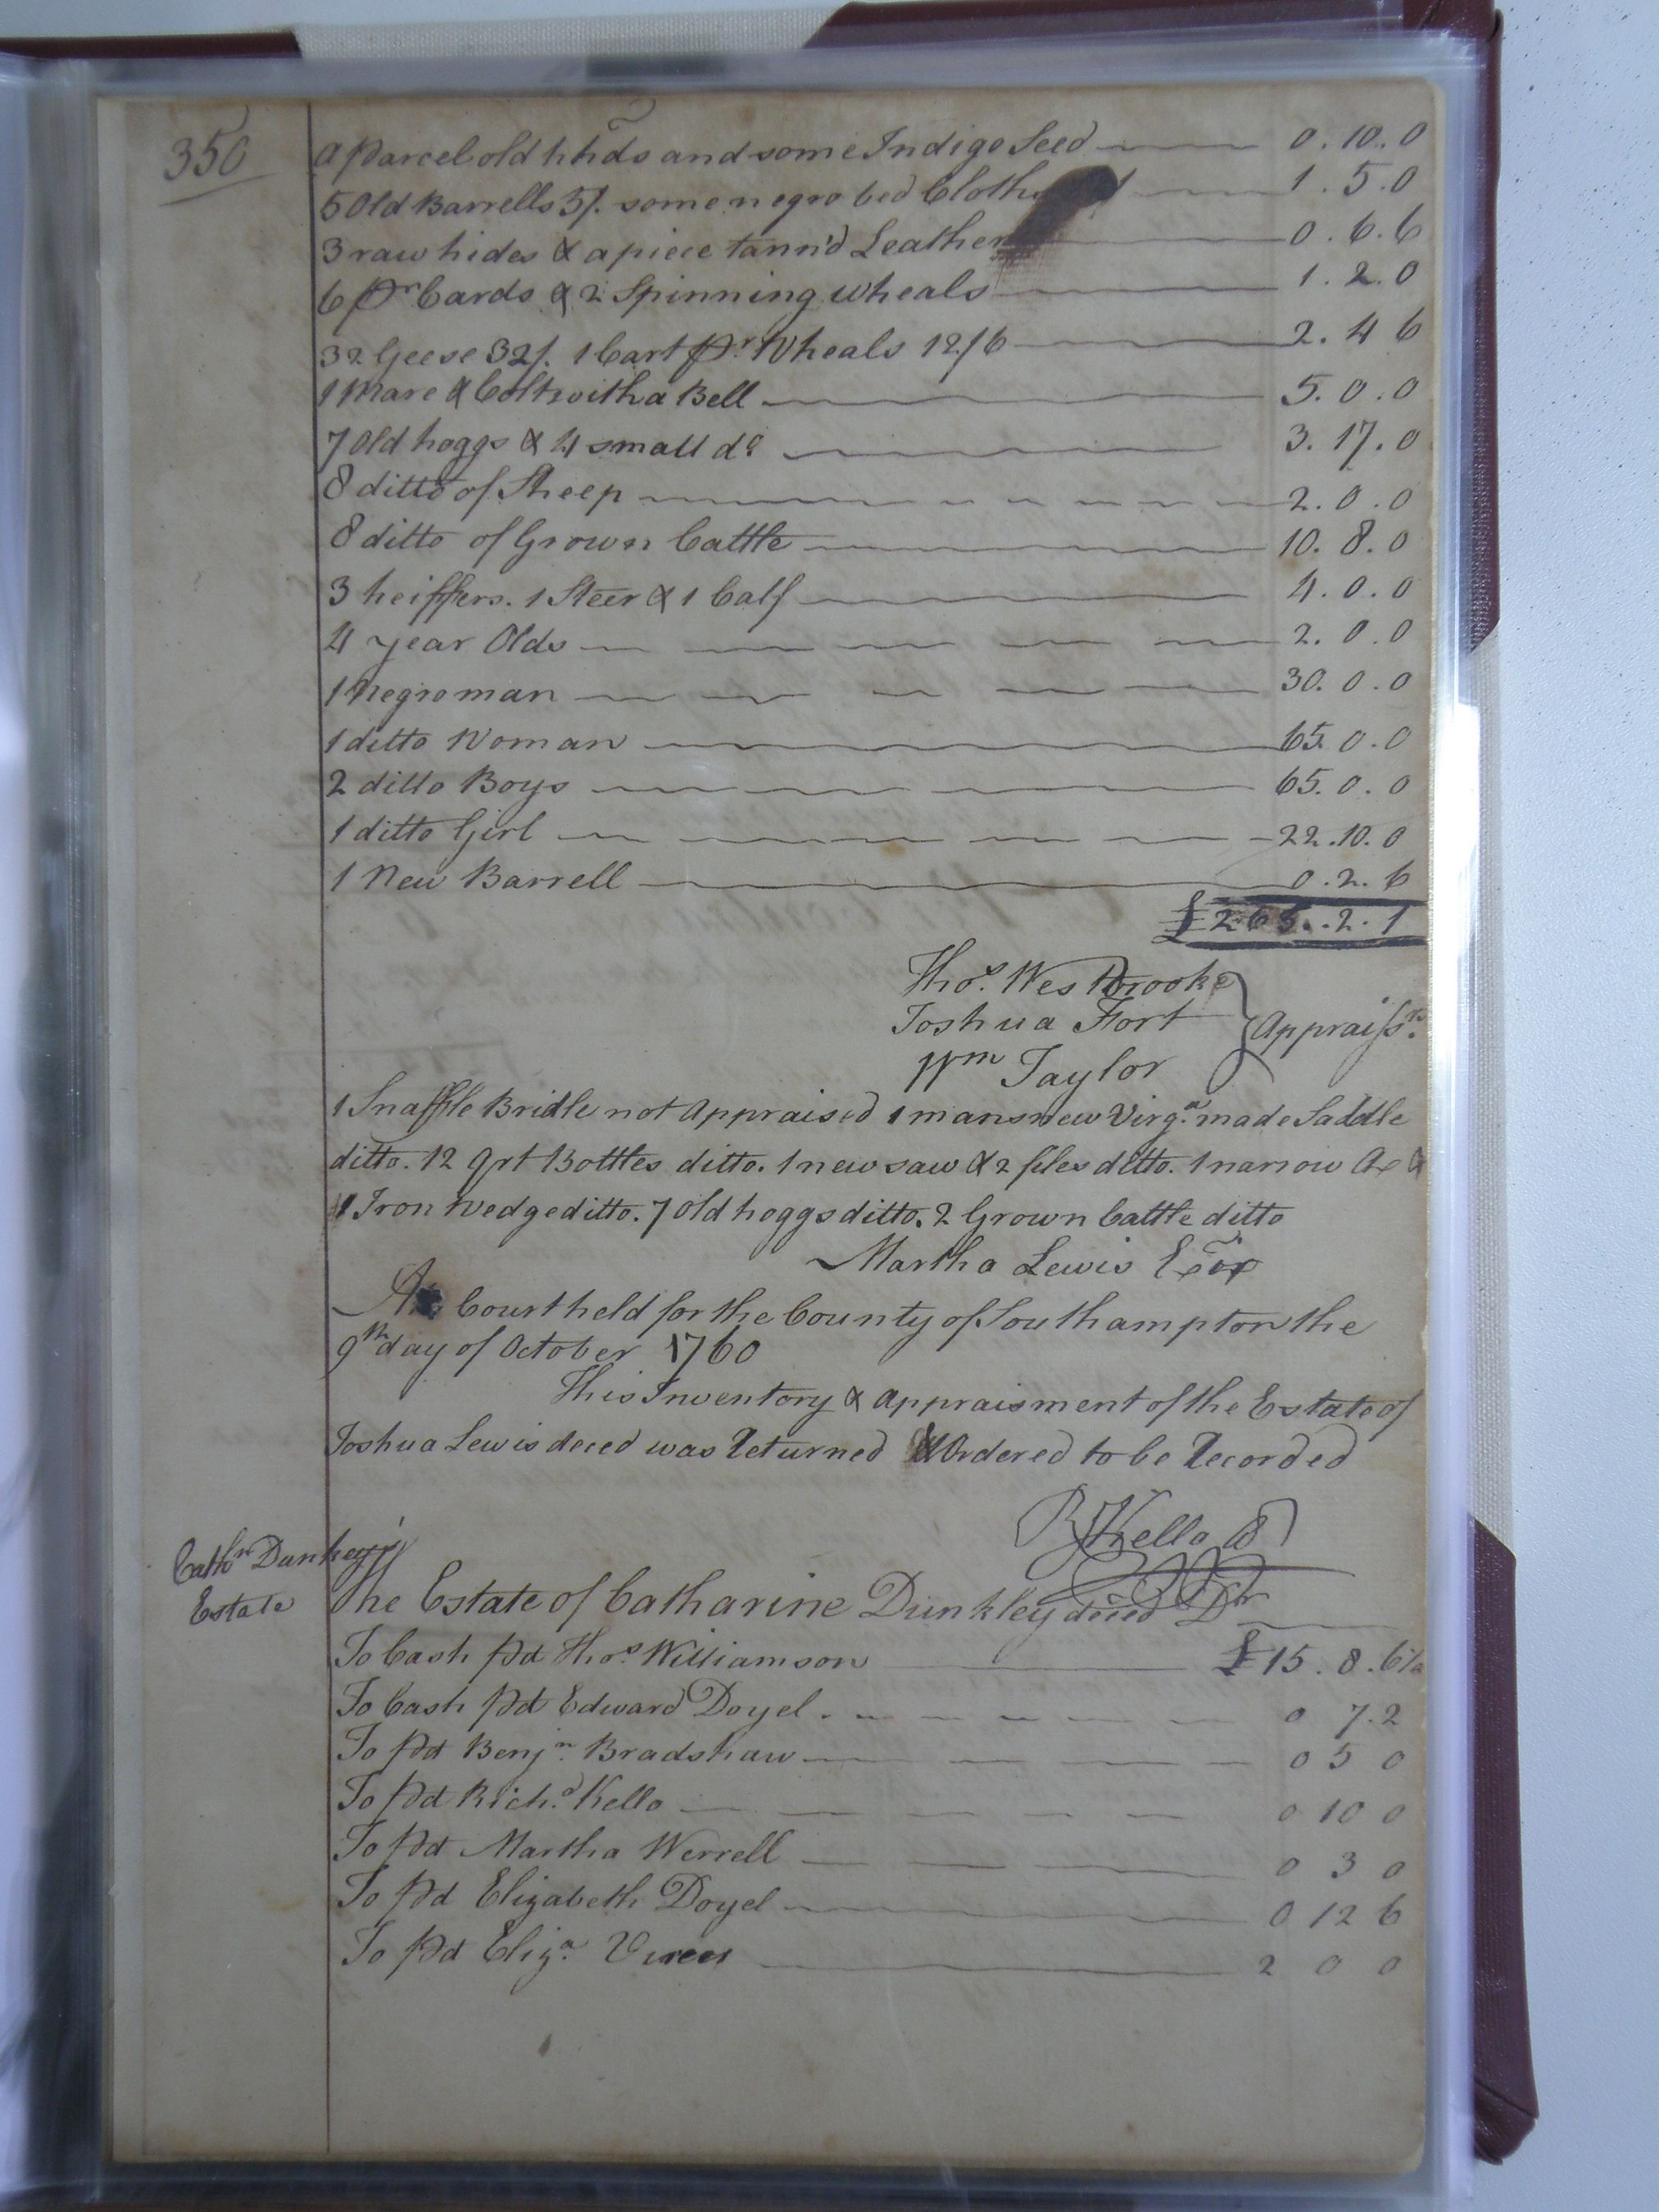 350
a Parcel old hhds and some Indigo Seed 0.10.0
5 Old Barrells 5/. some negro bed Cloths 1.5.0
3 raw hides & a piece tann'd Leather 0.6.6
6 Pr Cards & 2 Spinning wheals 1.2.0
32 Geese 32/. 1 Cart Pr. Wheals 12/6 2.4 6
1 Mare & Colt with a Bell 5.0.0
7 Old hoggs & 4 small do 3.17.0
8 ditto of Sheep 2.0.0
8 ditto of Grown Cattle 10.8.0
3 heiffers. 1 Steer & 1 Calf 4.0.0
4 year Olds 2.0.0
1 Negro man 30.0.0
1 ditto Woman 65.0.0
2 ditto Boys 65.0.0
1 ditto Girl 22.10.0
1 New Barrell 0.2.6
£265..2.1
Thos. Westbrooke
Joshua Fort Appraisrs.
Wm Taylor
1 Snaffle Bridle not appraised 1 mans new Virga. made Saddle
ditto. 12 qrt Bottles ditto. 1 new saw & 2 files ditto. 1 narrow Ax &
1 Iron wedge ditto. 7 old hoggs ditto. 2 Grown Cattle ditto
Martha Lewis Exix
At Court held for the County of Southampton the
9th day of October 1760
This Inventory & appraisment of the Estate of
Joshua Lewis deced was Returned & Ordered to be Recorded
R Kello
Cathn Dunkeys'
Estate
The Estate of Catharine Dunkley deced Dr
To Cash Pd Thos. Williamson £15.8.6½
To Cash Pd Edward Doyel 0 7.2
To Pd Benjn. Bradshaw 0 5 0
To Pd Richd. Kello 0 10 0
To Pd Martha Werrell 0 3 0
To Pd Elizabeth Doyel 0 12 6
To Pd Eliza. 2 0 0